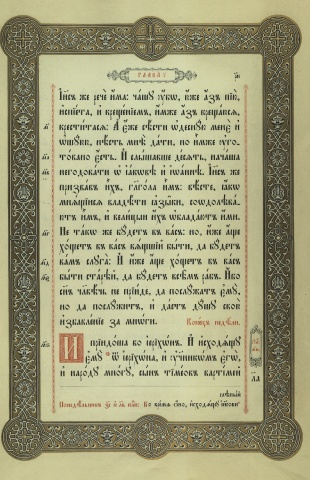 І҆и҃съ же речѐ и҆́ма: ча́шу ᲂу҆́бѡ, ю҆́же а҆́зъ пїю̀,
и҆спїе́та, и҆ креще́нїемъ, и҆́мже а҆́зъ креща́юсѧ,
крести́тасѧ: А҆ є҆́же сѣ́сти ѡ҆деснꙋ́ю менє̀ и҆
ѡ҆шꙋ́юю, нѣ́сть мнѣ̀ да́ти, но и҆̀мже ᲂу҆гото-
то́вано є҆́сть. И҆ слы́шавше де́сѧть, нача́ша
негодова́ти ѡ҆ і҆а́кѡвѣ и҆ і҆ѡа́ннѣ. І҆и҃съ же
призва́въ и҆̀хъ, глаго́ла и҆̀мъ: вѣ́сте, ꙗ҆́кѡ
мнѧ́щїисѧ владѣ́ти ꙗ҆зы́ки, соѡдолѣва́-
ютъ и҆̀мъ, и҆ вели́цыи и҆́хъ ѡ҆блада́ютъ и҆́ми.
Не та́кѡ же бꙋ́детъ въ ва́съ: но, и҆́же а҆́ще
хо́щетъ въ ва́съ вѧ́щшїй бы́ти, да бꙋ́детъ
ва́мъ слꙋга̀: И҆ и҆́же а҆́ще хо́щетъ въ ва́съ
бы́ти старѣ́й, да бꙋ́детъ всѣ̑мъ ра́бъ. И҆́бо
сн҃ъ чл҃вѣ́чь не прїи́де, да послꙋ́жатъ є҆мꙋ̀,
но да послꙋ́житъ, и҆ да́стъ дꙋ́шꙋ свою̀
и҆збавле́нїе за мнѡ́ги. Коне́цъ недѣ́ли.
И҆ прїидо́ша во і҆ерїхѡ́нъ. И҆ и҆сходѧ́щꙋ
є҆мꙋ̀ ѿ і҆ерїхѡ́на, и҆ ᲂу҆ченикѡ́мъ є҆гѡ̀,
и҆ наро́дꙋ мно́гꙋ, сы́нъ тїме́овъ вартїме́й